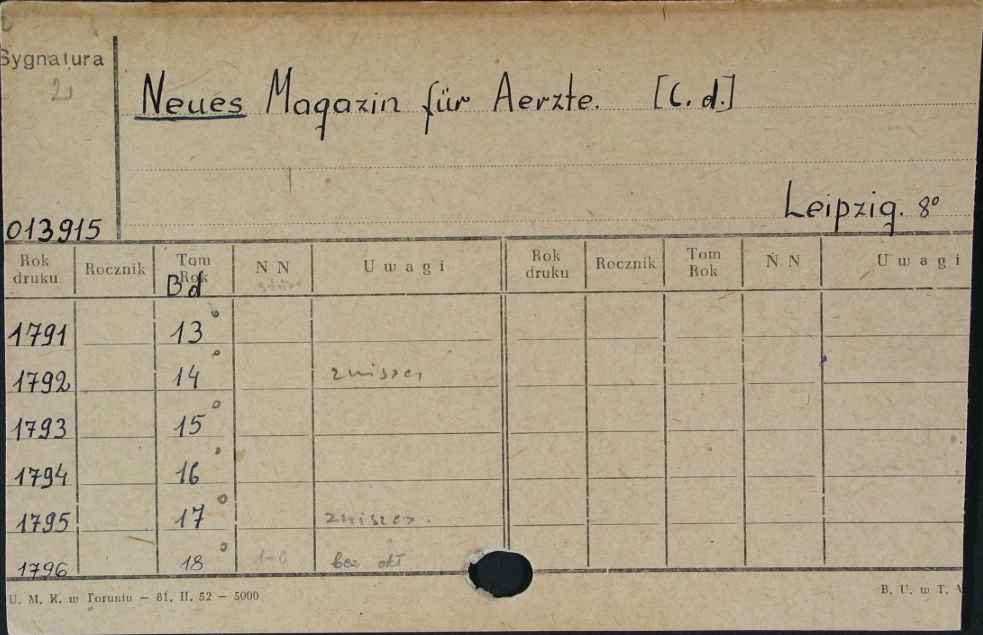 Sygnatura
2
Neues Magazin für Aerzte. [C. d.]
Leipzig. 8°
013915
Rok druku Rocznik Tom Rok N N Uwagi Rok druku Rocznik Tom Rok N N Uwagi
Bd
1791 13
1792 14 zniszcz
1793 15
1794 16
1795 17 zniszcz.
1796 18 1-6 bez okł
U. M. K. w Toruniu — 81. II. 52 — 5000
B. U. w T.